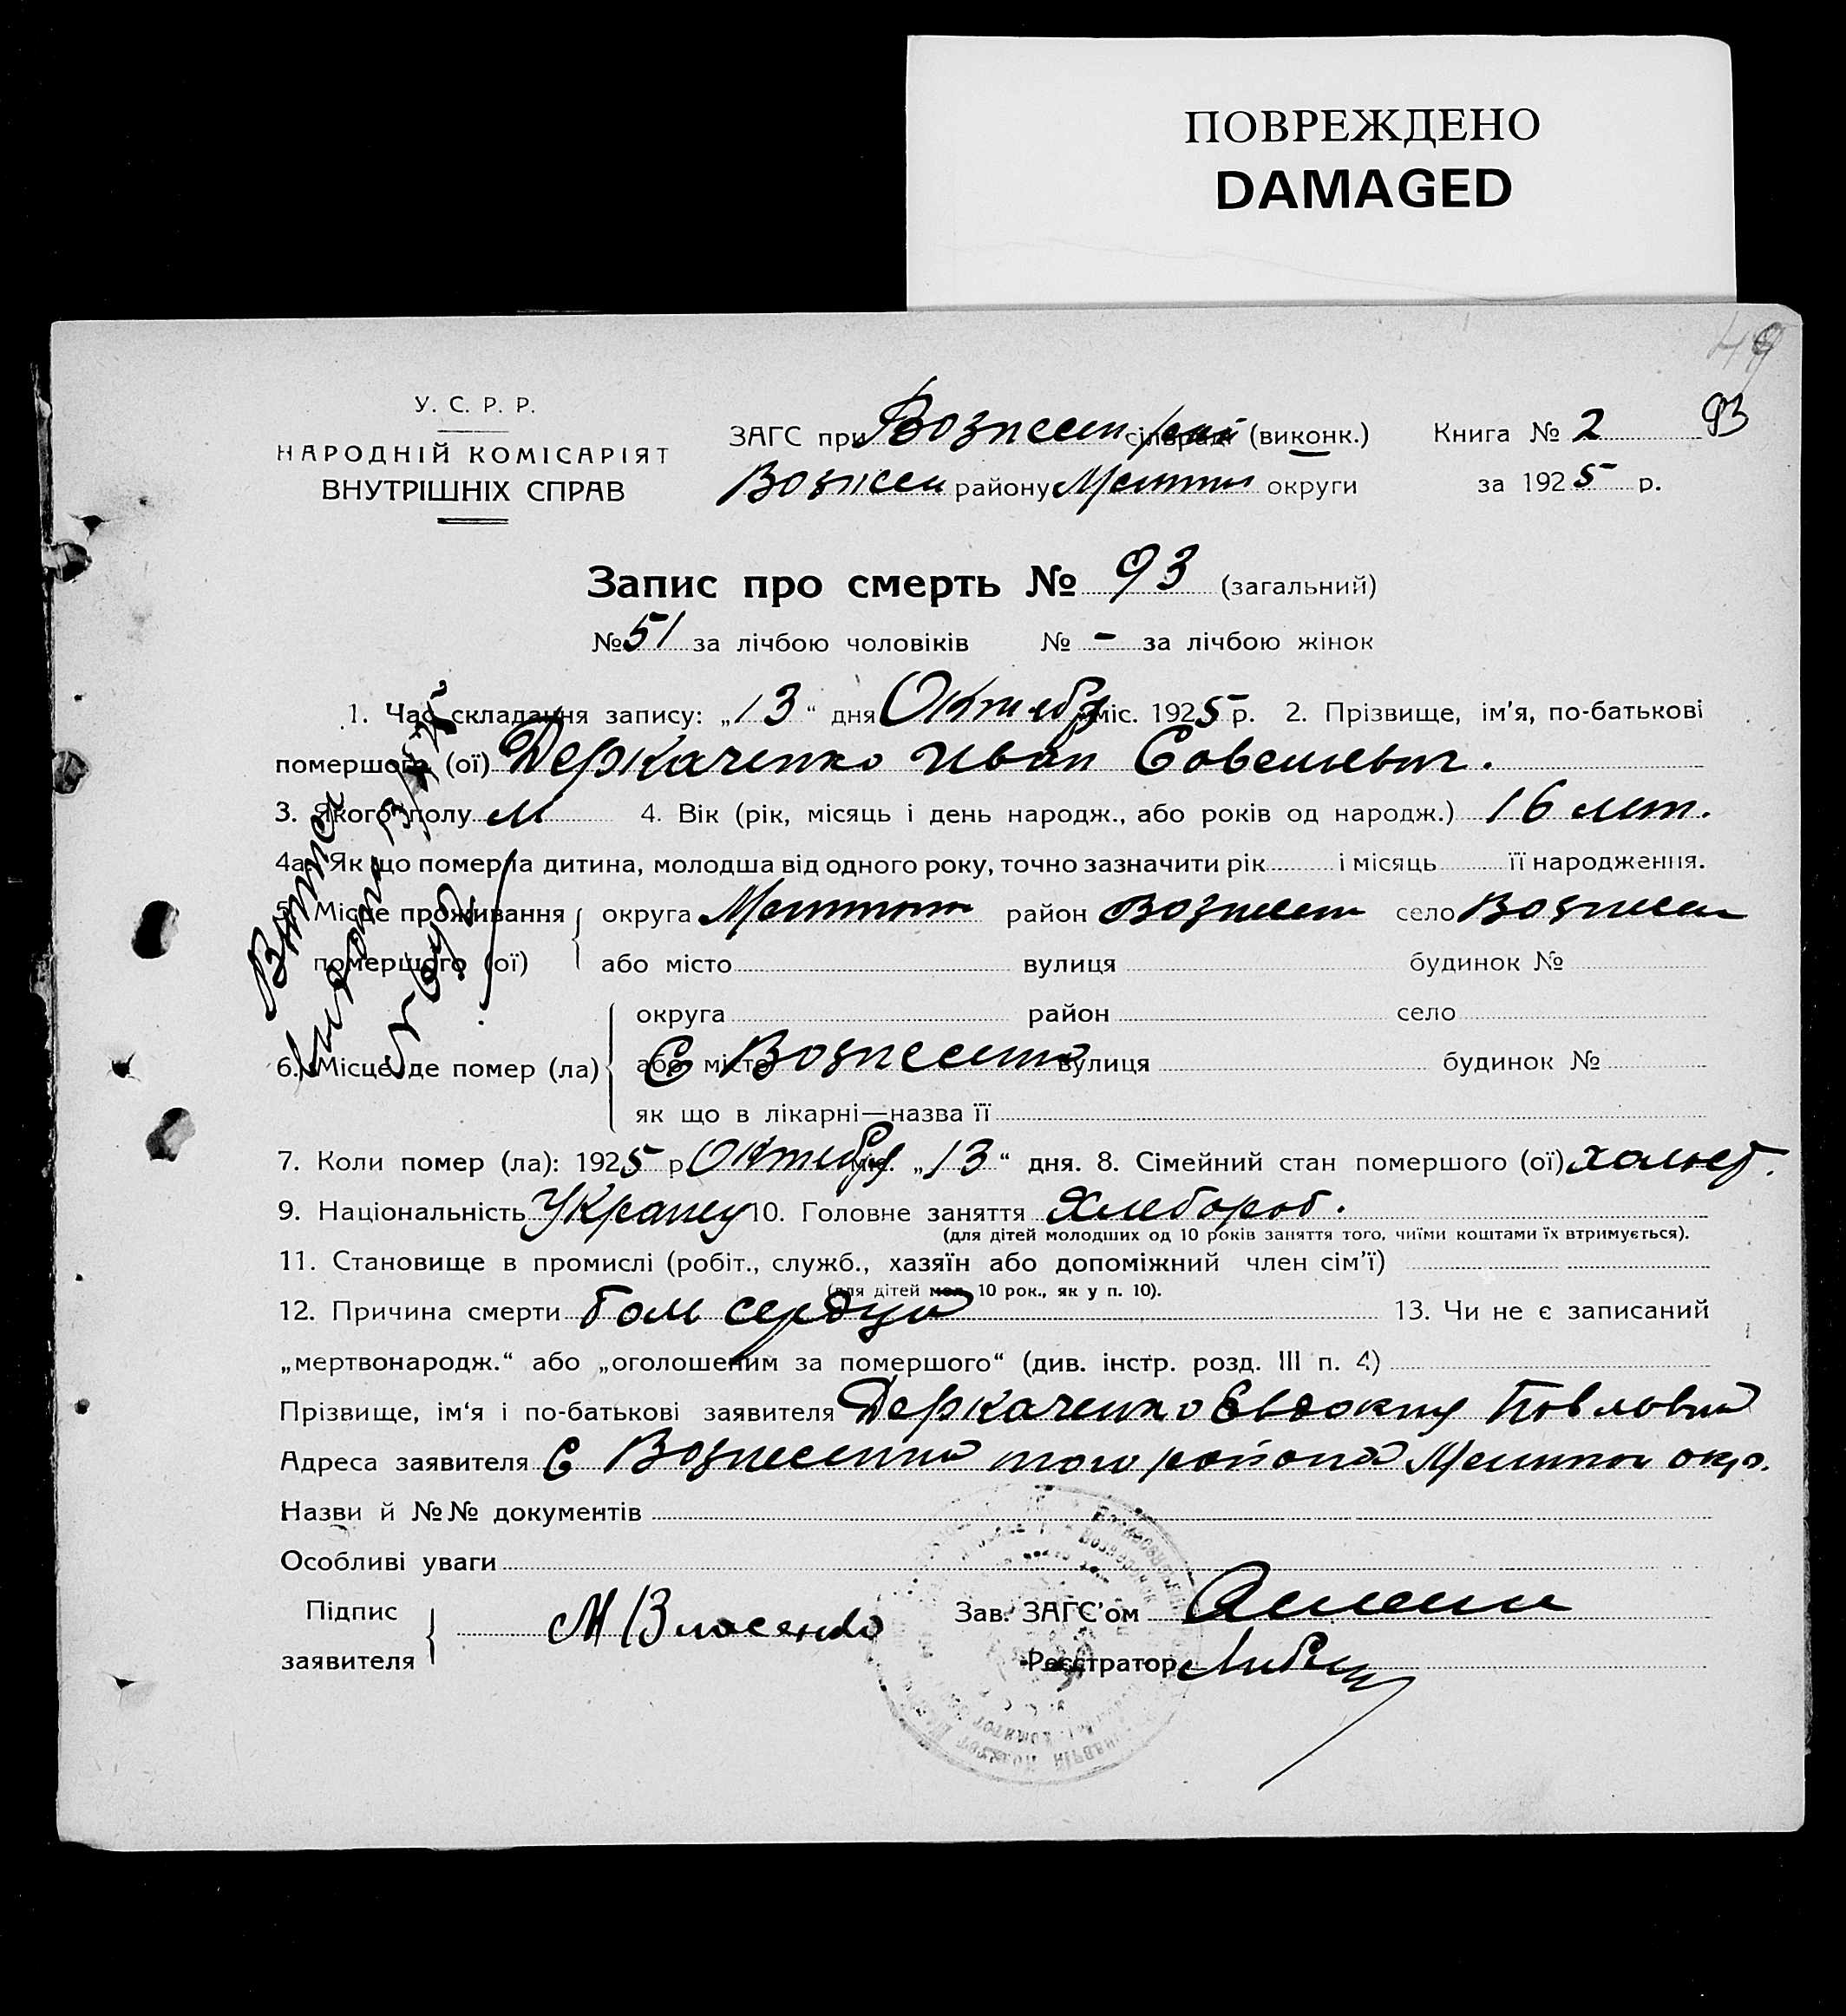 ПОВРЕЖДЕНО
DAMAGED
49
У. С. Р. Р.
НАРОДНІЙ КОМІСАРІЯТ
ВНУТРІШНІХ СПРАВ
ЗАГС при Вознесен сільраді (виконк.)
Вознесен району Мелитоп округи
Книга № 2 93
за 1925 р.
Запис про смерть № 93 (загальний)
№ 51 за лічбою чоловіків № - за лічбою жінок
1. Час складання запису: „13“ дня Октября міс. 1925 р. 2. Прізвище, ім’я, по-батькові
помершого (ої) Деркаченко Иван Савельевич.
3. Якого полу м 4. Вік (рік, місяць і день народж., або років од народж.) 16 лет.
4а. Як що померла дитина, молодша від одного року, точно зазначити рік і місяць її народження.
5. Місце проживання помершого (ої) округа Мелитоп район Вознесен село Вознесен
або місто вулиця будинок №
6. Місце де помер (ла) округа район село
або місто С Вознесенка вулиця будинок №
як що в лікарні—назва її
7. Коли помер (ла): 1925 р Октября міс. „13“ дня. 8. Сімейний стан помершого (ої) холост.
9. Національність 10. Головне заняття Хлебороб.
(для дітей молодших од 10 років заняття того, чиїми коштами їх втримується).
11. Становище в промислі (робіт., служб., хазяїн або допоміжний член сім’ї)
(для дітей мол. 10 рок., як у п. 10).
12. Причина смерти боль сердца 13. Чи не є записаний
„мертвонародж.“ або „оголошеним за помершого“ (див. інстр. розд. III п. 4)
Прізвище, ім‘я і по-батькові заявителя Деркаченко Евдокия Павловна
Адреса заявителя С Вознесенка того района Мелитоп окр.
Назви й №№ документів
Особливі уваги
Підпис
заявителя
Зав. ЗАГС’ом
Реєстратор